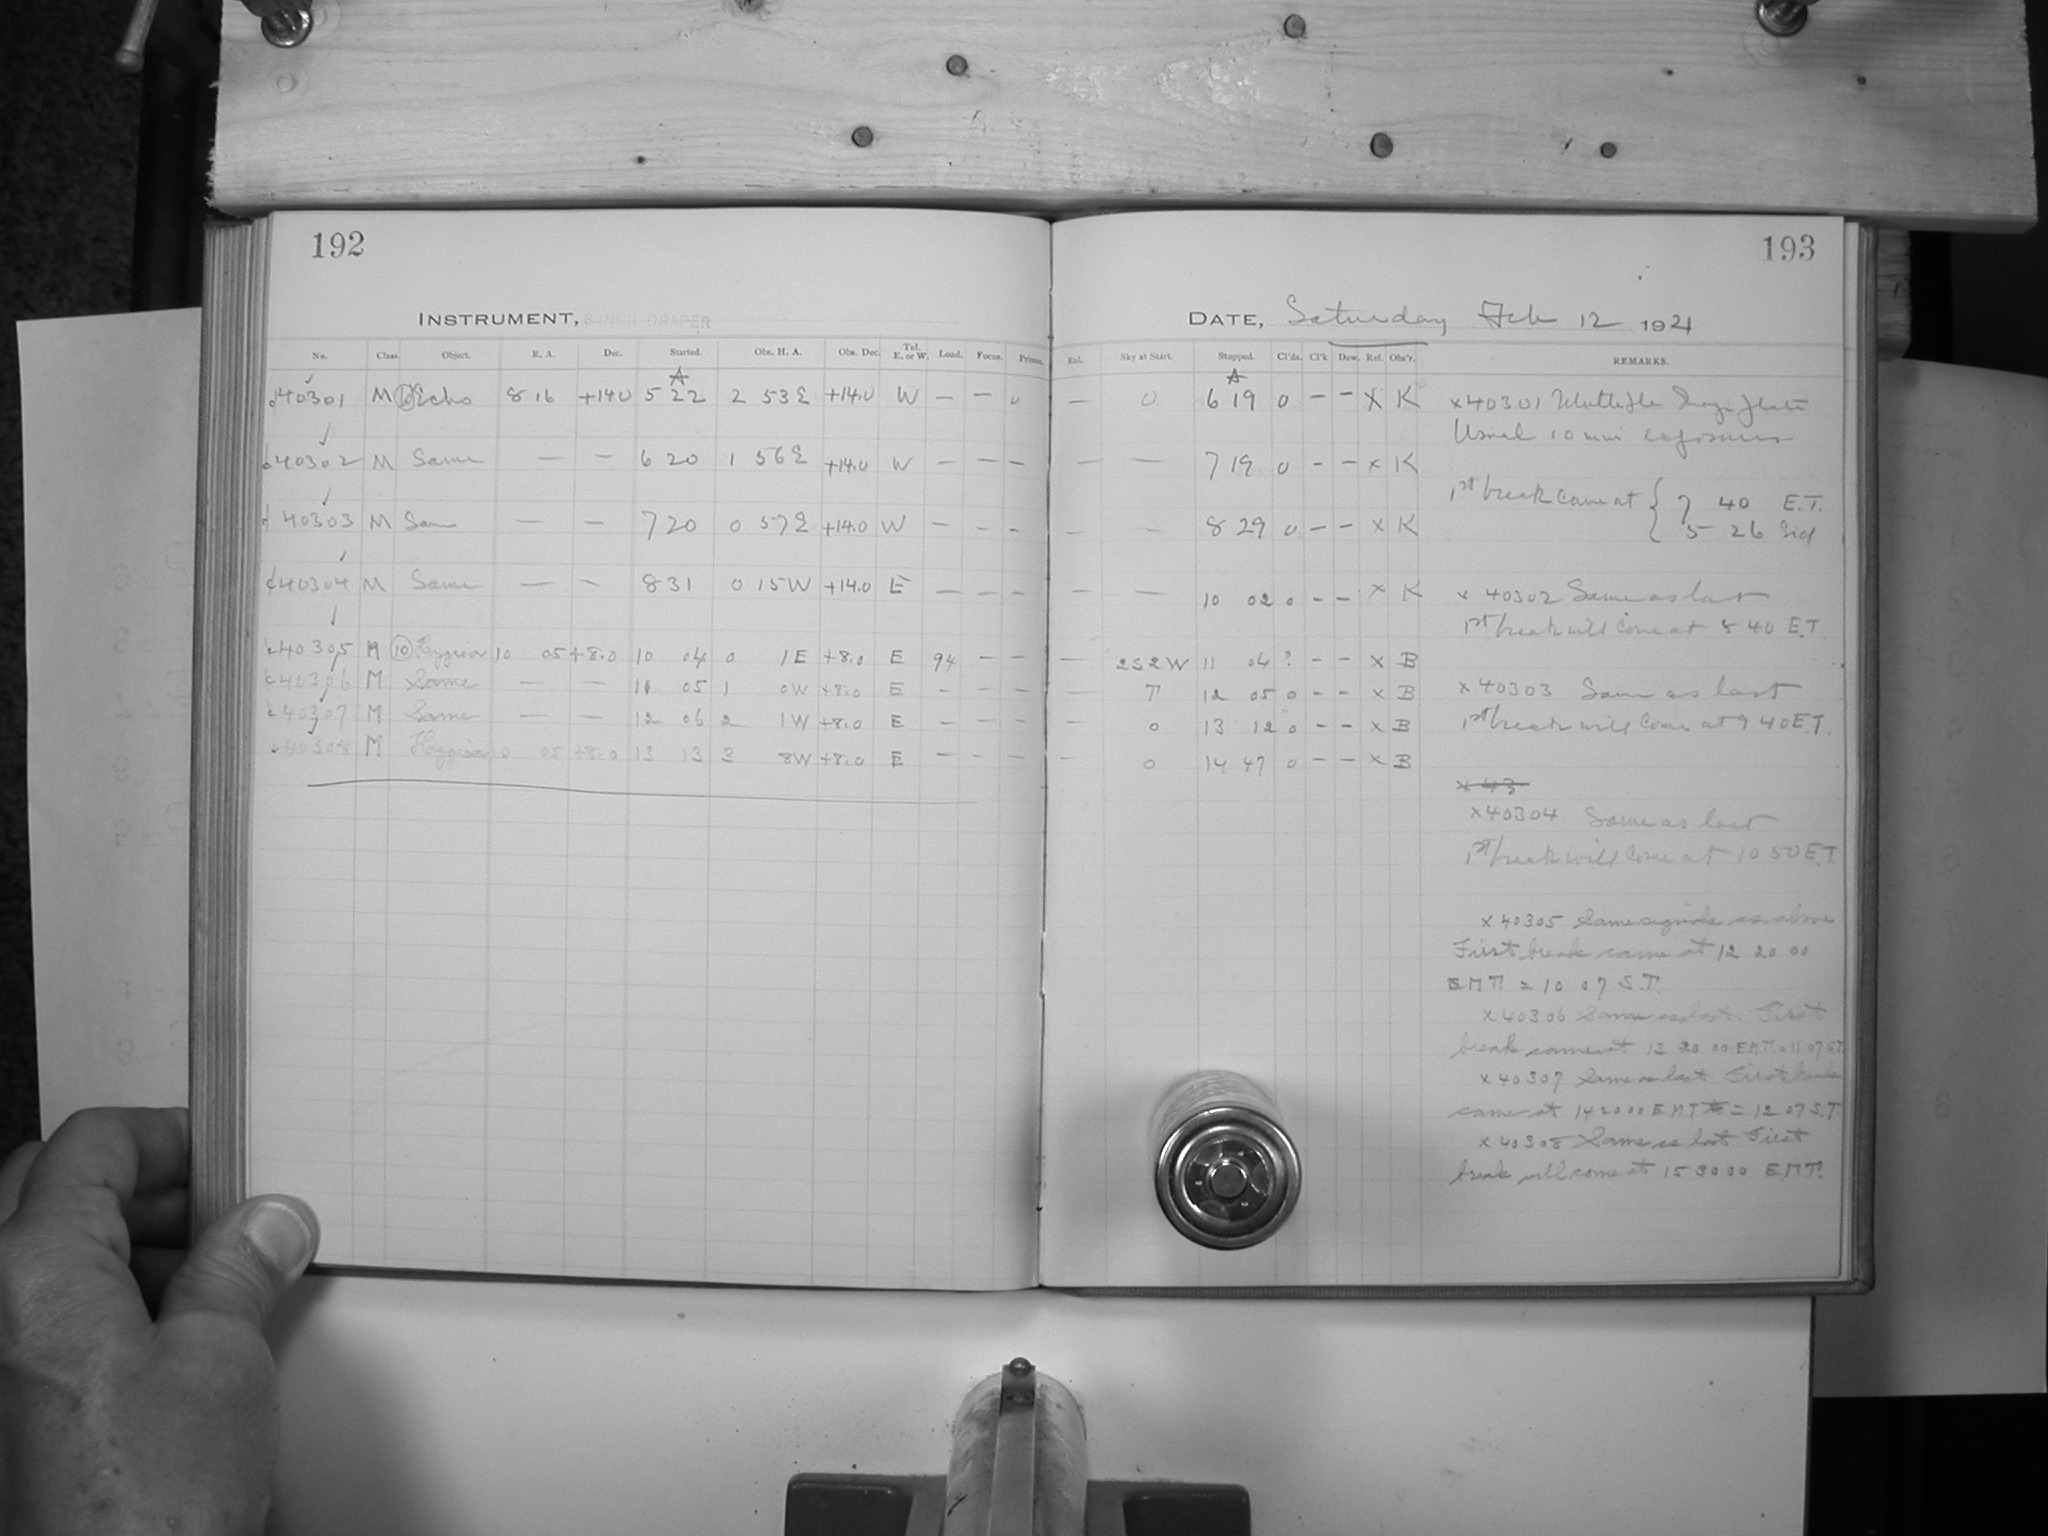 192
193
INSTRUMENT, 8-INCH DRAPER
DATE, Saturday Feb 12 1921
No. Class. Object. R. A. Dec. Started. Obs. H. A. Obs. Dec. Tel. E. or W. Load. Focus. Prisms. Eal. Sky at Start. Stopped. Cl'ds. Cl'k Dew. Ref. Obs'r. REMARKS.
A A
40301 M Echo 8 16 +14.0 5 22 2 53 E +14.0 W — — 0 — 0 6 19 0 – – X K
40302 M Same — — 6 20 1 56 E +14.0 W – – – — — 7 19 0 – – x K
40303 M Same — — 7 20 0 57 E +14.0 W – – – — — 8 29 0 – – x K
40304 M Same — — 8 31 0 15 W +14.0 E – – – — — 10 02 0 – – x K
40305 M 10 Hygiea 10 05 +8.0 10 04 0 1 E +8.0 E 94 – – — 2S2W 11 04 ? – – x B
40306 M Same — — 11 05 1 0 W +8.0 E – – – — T 12 05 0 – – x B
40307 M Same — — 12 06 2 1 W +8.0 E – – – — 0 13 12 0 – – x B
40308 M Hygiea 10 05 +8.0 13 13 3 8 W +8.0 E – – – — 0 14 47 0 – – x B
x 40301 Multiple Image plate
Usual 10 min exposures
1st break came at { 7 40 E.T.
5 26 Sid
x 40302 Same as last
1st break will come at 8 40 E.T.
x 40303 Same as last
1st break will come at 9 40 E.T.
x 43
x 40304 Same as last
1st break will come at 10 50 E.T.
x 40305 Same signals as above
First break came at 12 20 00
EMT. = 10 07 S.T.
x 40306 Same as last. First
break came at 13 20 00 E.M.T. = 11 07 S.T.
x 40307 Same as last First break
came at 14 20 00 E M T = 12 07 S.T.
x 40308 Same as last First
break will come at 15 30 00 E.M.T.